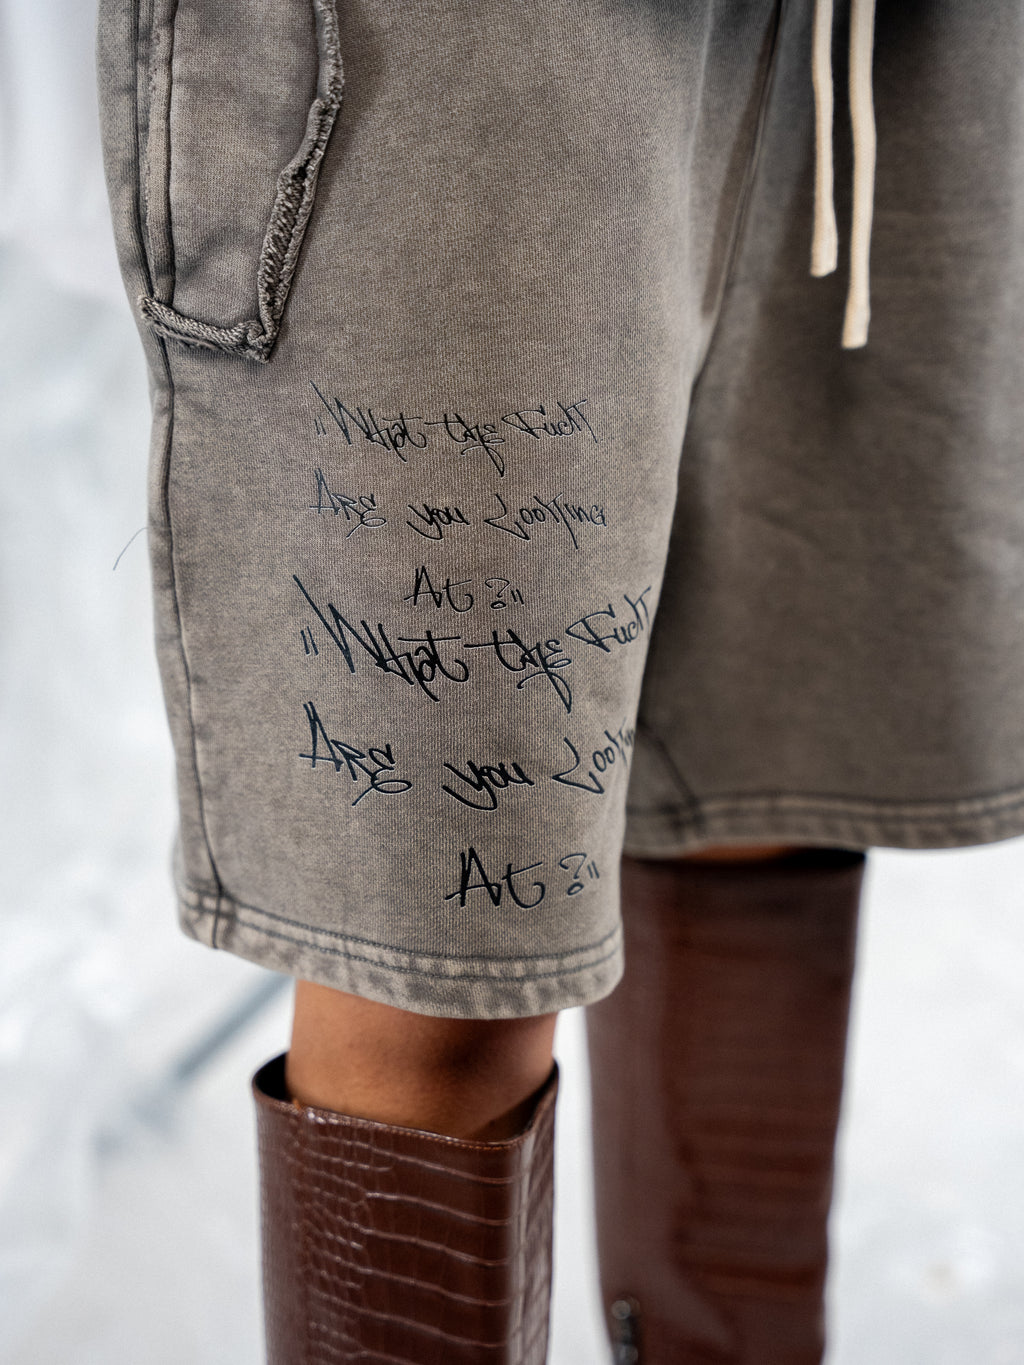 "What the Fuck
Are you Looking
At?"
"What the Fuck
Are you Lookin
At?"